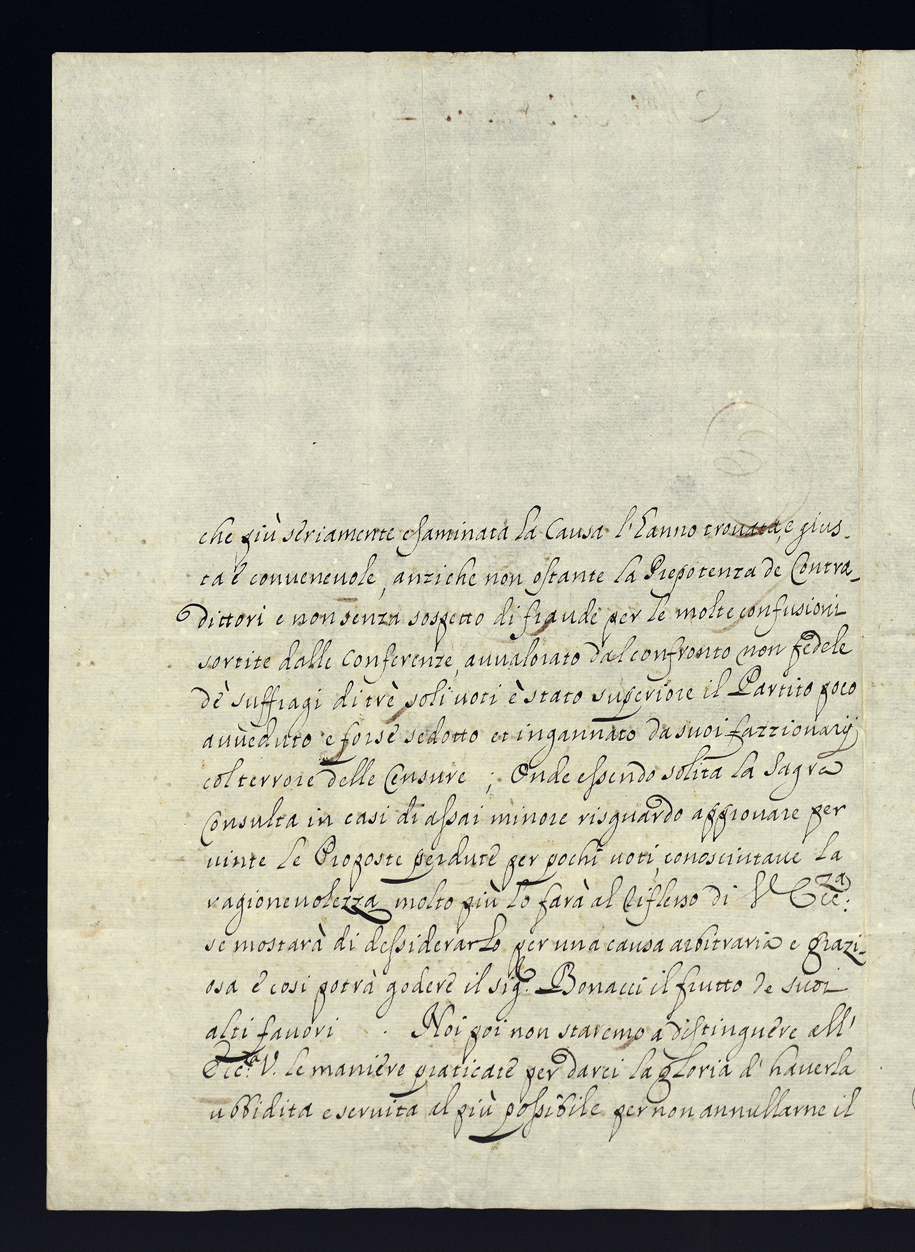 che più seriamente esaminata la Causa l'hanno trouata, e gius-
ta e conueneuole, anziche non ostante la Prepotenza de Contra-
dittori e non senza sospetto di fraude per le molte confusioni
sortite dalle Conferenze, auualorato dal confronto non fedele
dè suffragi di trè soli uoti è stato superiore il Partito poco
auueduto e forse sedotto et ingannato da suoi fazzionarij
col terrore delle Censure ; Onde essendo solita la Sagra
Consulta in casi di assai minore risguardo approuare per
uinte le Proposte perdute per pochi uoti, conosciutaue la
ragioneuolezza molto più lo farà al riflesso di V Ecc:za
se mostarà di dessiderarlo per una causa arbitraria e grazi-
osa e cosi potrà godere il sig.r Bonacci il frutto de suoi
alti fauori . Noi poi non staremo a distinguere all'
Ecc.a V. le maniere praticate per darci la gloria d' hauerla
ubbidita e seruita al più possibile per non annullarne il